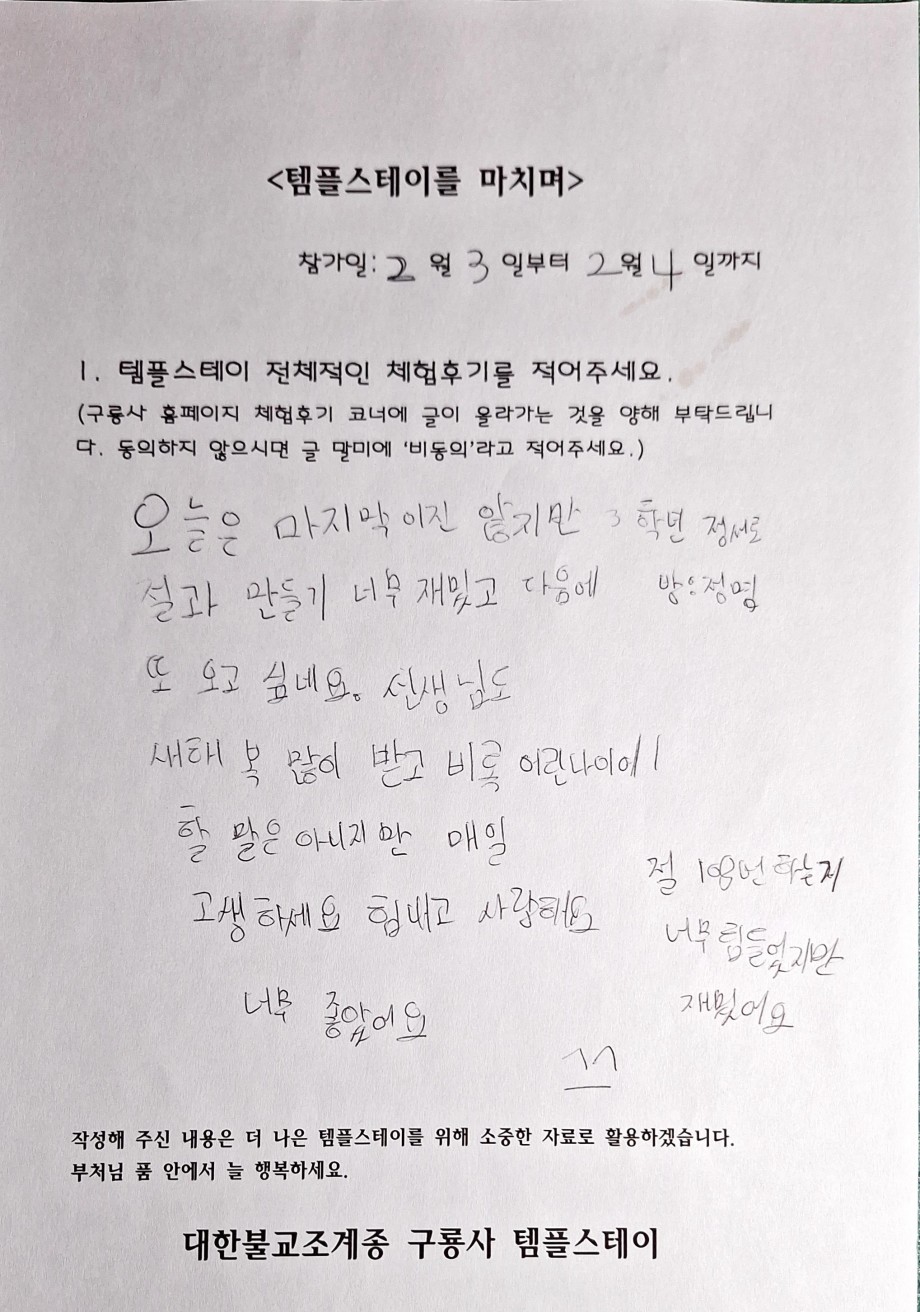 <템플스테이를 마치며>
참가일: 2 월 3 일부터 2월 4 일까지
1. 템플스테이 전체적인 체험후기를 적어주세요.
(구룡사 홈페이지 체험후기 코너에 글이 올라가는 것을 양해 부탁드립니
다. 동의하지 않으시면 글 말미에 '비동의'라고 적어주세요.)
오늘은 마지막이진 않지만 3학년 정서로
절과 만들기 너무 재밌고 다음에
또 오고 싶네요. 선생님도
새해 복 많이 받고 비록 어린나이에
할 말은 아니지만 매일
고생하세요 힘내고 사랑해요
너무 좋았어요
절 108번 하는게
너무 힘들었지만
재밌어요
끄
작성해 주신 내용은 더 나은 템플스테이를 위해 소중한 자료로 활용하겠습니다.
부처님 품 안에서 늘 행복하세요.
대한불교조계종 구룡사 템플스테이